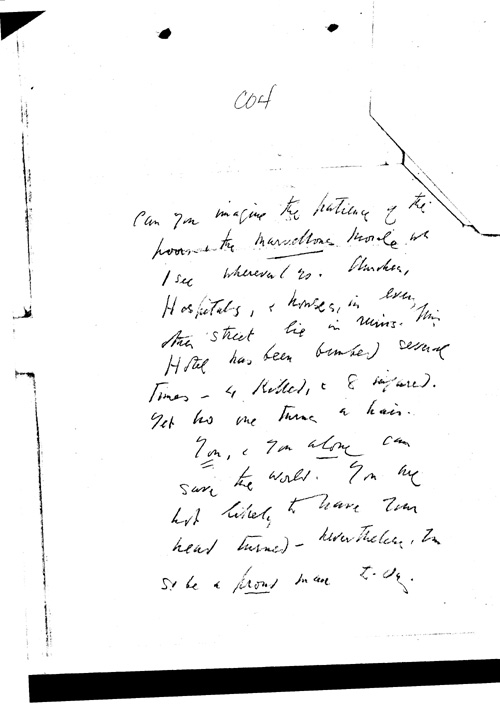 C04
Can you imagine the patience of the
poor & the marvellous morale wh
I see wherever I go. Churches,
Hospitals, & houses, in every
other street lie in ruins. This
Hotel has been bombed several
times – 4 killed, & 8 injured.
Yet no one turns a hair.
You, & you alone can
save the world. You are
not likely to have your
head turned – nevertheless, you
be a proud man to-day.